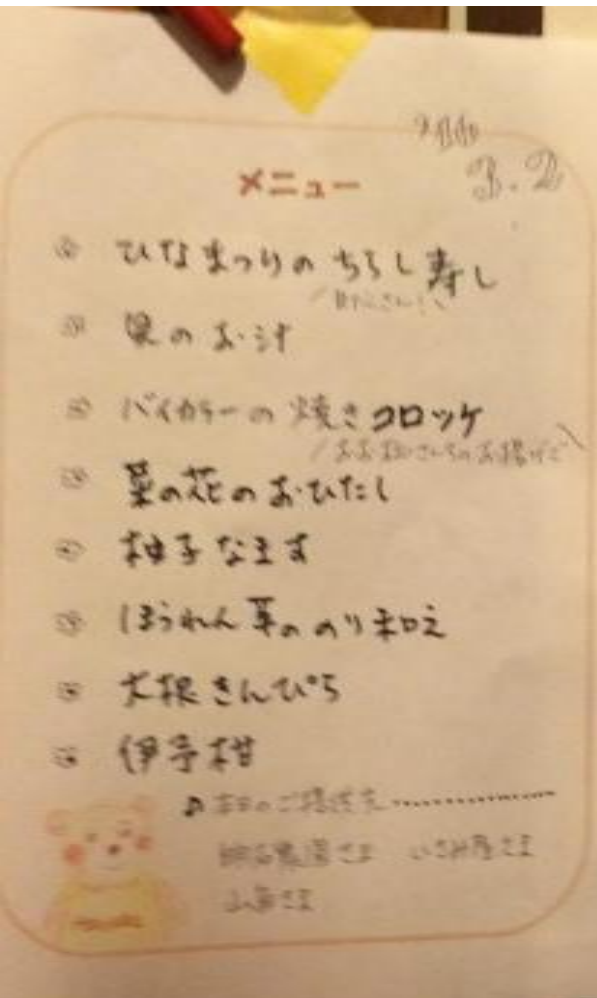 3.2
メニュー
ひなまつりのちらし寿し
のお汁
バイカラーの焼きコロッケ
菜の花のおひたし
柚子なます
ほうれん草ののり和え
大根きんぴら
伊予柑
♪本日のご提供先
農園さま いさみ屋さま
さま